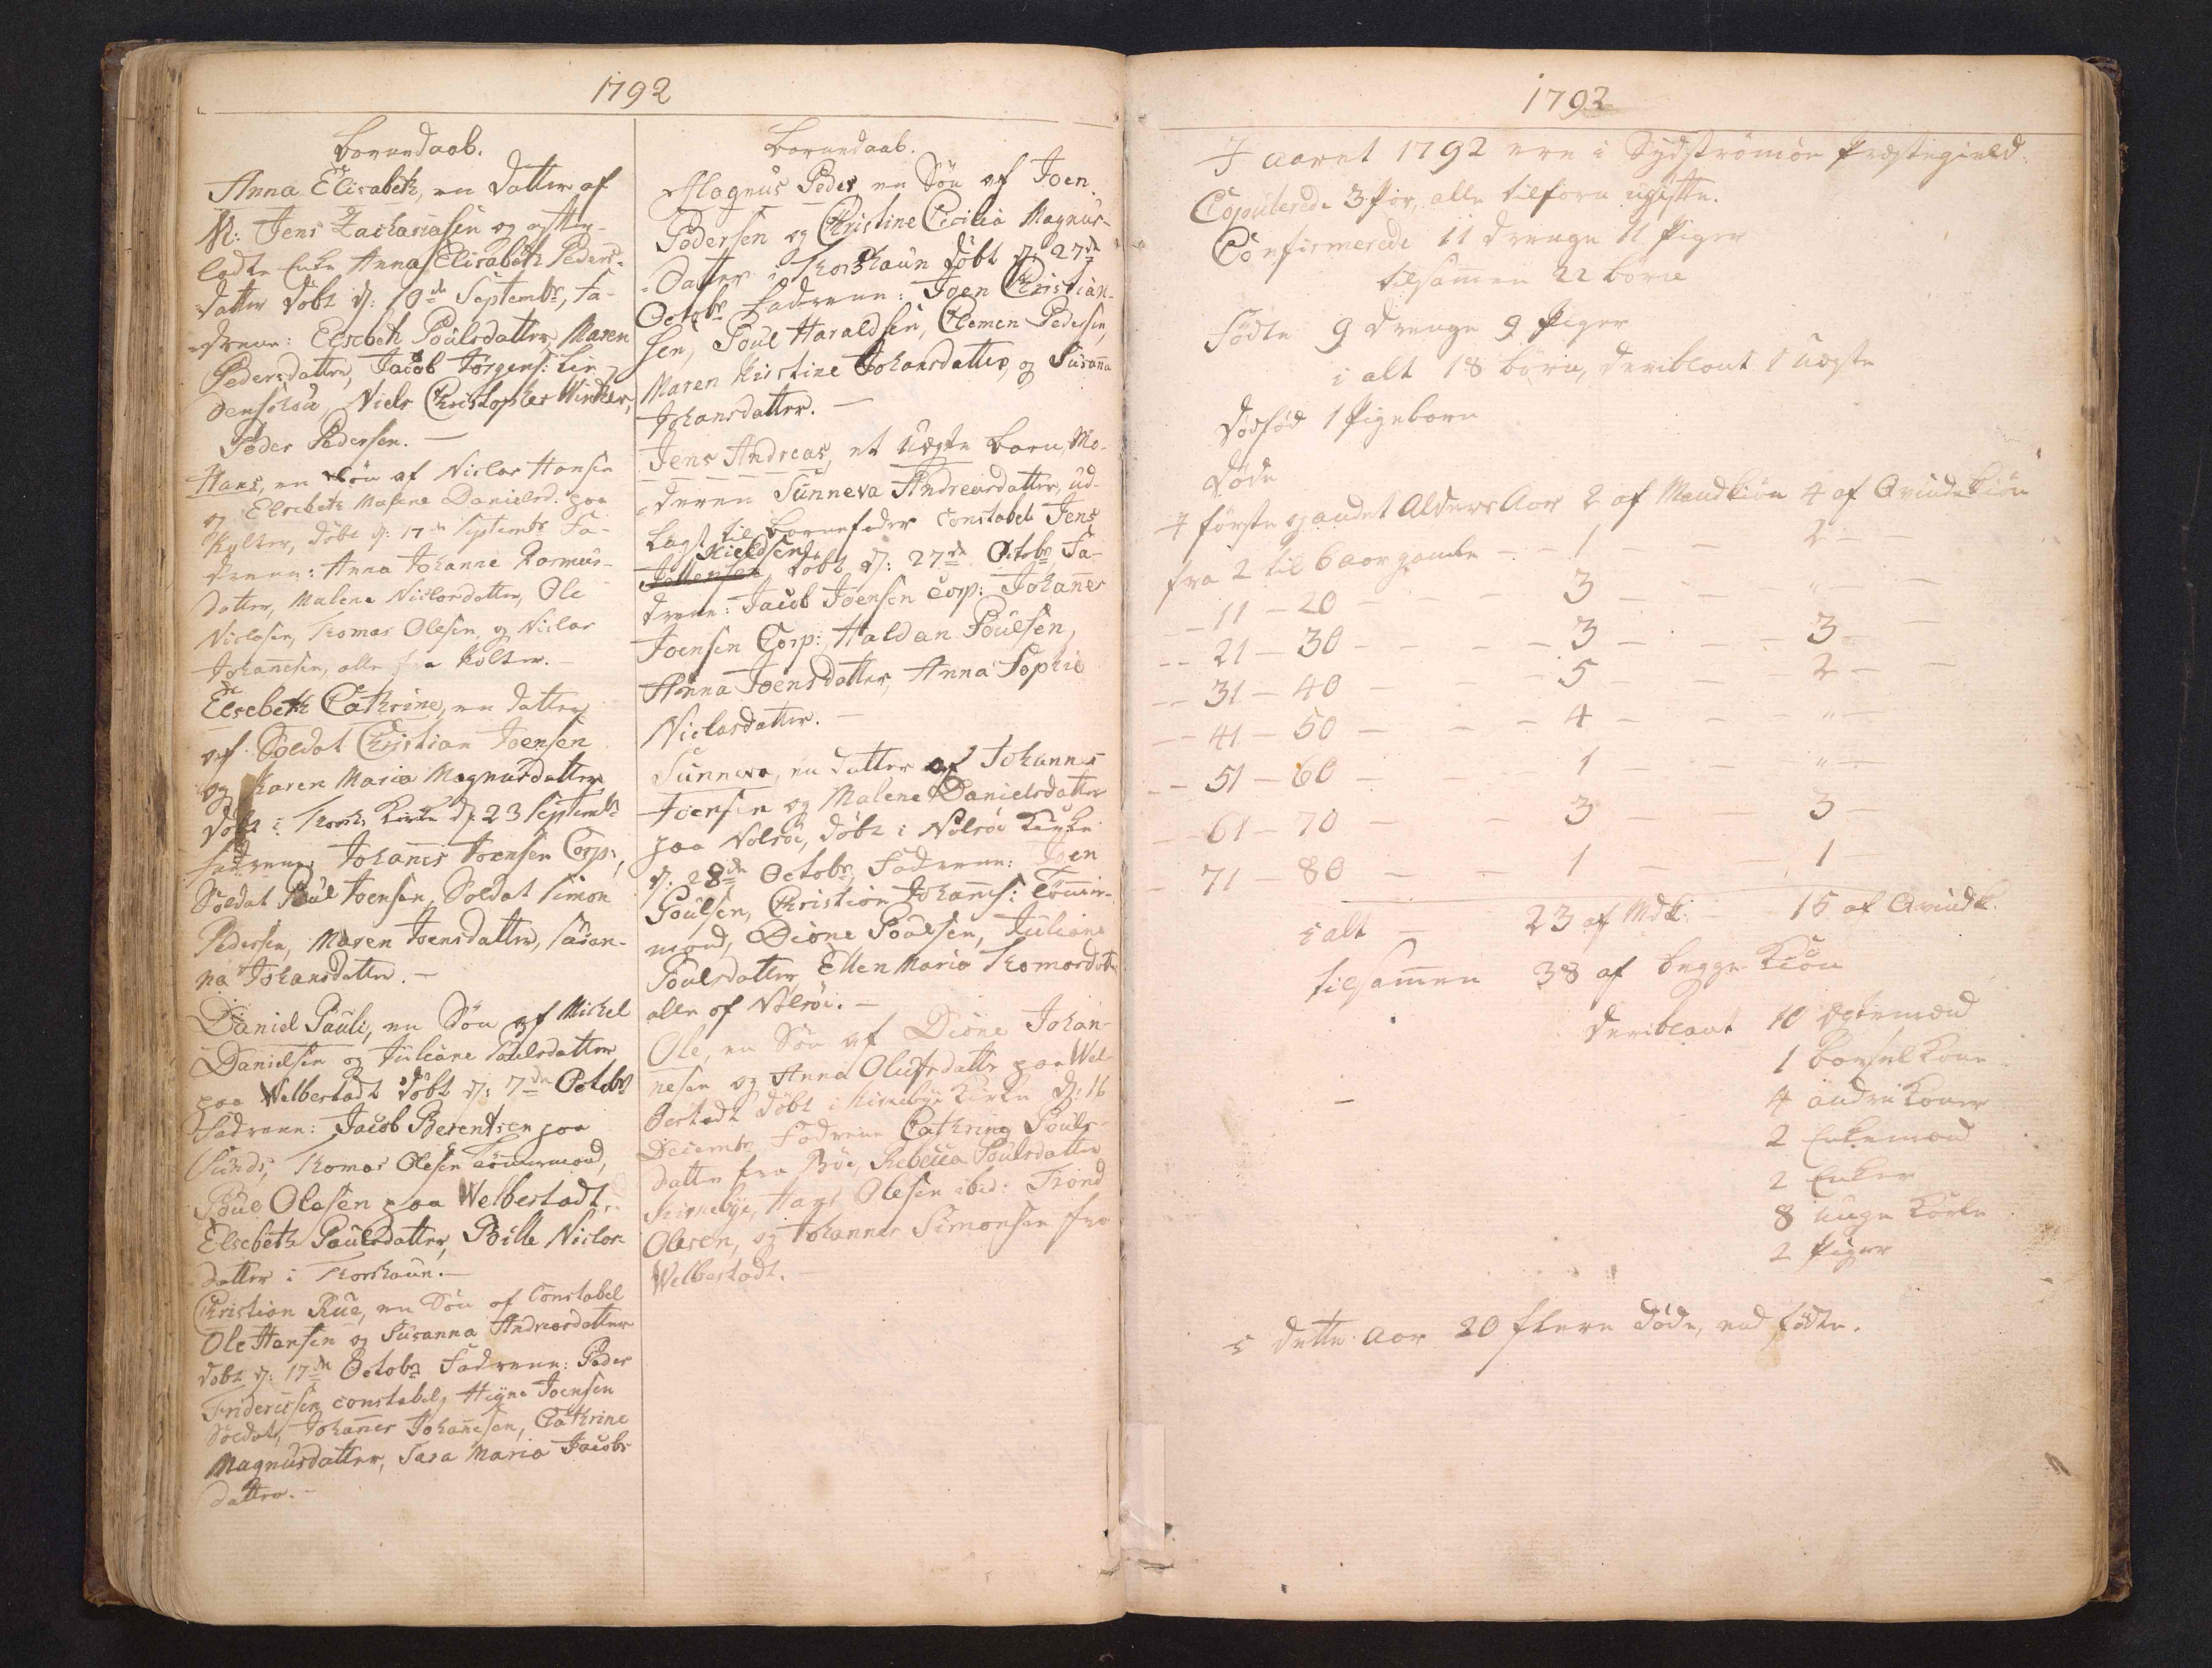 1792
Børnedaab.
Anna Elisabeth, en Datter af
M: Jens Zachariasen og efter-
ladte Enke Anna Elisabeth Peders-
datter døbt d: 10de Septembr, Fa-
drene: Elsebeth Poulsdatter, Maren
Pedersdatter, Jacob Jørgens: Lin-
denskou Niels Christopher Winther,
Peder Pedersen. —
Hans, en Søn af Niclas Hansen
og Elsebeth Malene Danielsd. paa
Kolter, døbt d: 17de Septembr Fa-
drene: Anna Johanne Rasmus-
datter, Malene Niclasdatter, Ole
Niclasen, Thomas Olesen, og Niclas
Johannesen, alle fra Kolter. —
Elsebeth Cathrine, en datter
af Soldat Christian Joensen
og Karen Maria Magnusdatter
døbt i Thorsh: Kirke d: 23 Septembr
Fadrene: Johannes Joensen Corp:,
Soldat Poul Joensen, Soldat Simon
Pedersen, Maren Joensdatter, Susan-
na Johansdatter. —
Daniel Pauli, en Søn af Michel
Danielsen og Juliane Poulsdatter
paa Welbestadt døbt d: 7de Octobr
Fadrene: Jacob Berentsen paa
Sund, Thomas Olesen Tømmermand,
Poul Olesen paa Welbestadt,
Elsebeth Poulsdatter, Bille Niclas-
datter i Thorshaun. —
Christian Rue, en Søn af Constabel
Ole Hansen og Susanna Andreasdatter
døbt d: 17de Octobr Fadrene: Peder
Friderichsen constabel, Heyne Joensen
Soldat, Johannes Johannesen, Cathrine
Magnusdatter, Sara Maria Jacobs
datter. —
Børnedaab.
Magnus Peder en Søn af Joen
Pedersen og Christine Cicilia Magnus-
datter i Thorshaun døbt d: 27de
Octobr Fadrene: Joen Christian-
sen, Poul Haraldsen, Clemen Pedersen,
Maren Kirstine Johansdatter, og Susanna
Johansdatter. —
Jens Andreas, et Uægte Barn, Mo-
deren Sunneva Andreasdatter, ud-
lagt til Barnefader Constabel Jens
Kieldsen
døbt d: 27de Octobr, Fa-
drene: Jacob Joensen Corp: Johannes
Joensen Corp:, Haldan Poulsen,
Anna Joensdatter, Anna Sophie
Niclasdatter. —
Sunneva, en datter af Johannes
Joensen og Malene Danielsdatter
paa Nolsøe, døbt i Nolsøe Kirke
d: 28de Octobr, Fadrene: Joen
Poulsen, Christian Johannes: Tømmer-
mand, Dione Poulsen, Juliane
Poulsdatter, Ellen Maria Thomasdatter
alle af Nolsøe. —
Ole, en Søn af Dione Johan-
nesen og Anna Olufsdatter paa Wel-
bestadt døbt i Kirkebye Kirke d: 16
Decembr Fadrene Cathrine Pouls-
datter fra Bøe, Rebecca Poulsdatter
Kirkebye, Hans Olesen ibid: Trond
Olesen, og Johannes Simonsen fra
Welbestadt.
1792
I aaret 1792 ere i Sydstrømøe Præstegield
Copulerede 3 Par, alle tilforn ugifte.
Confirmerede 11 drenge 11 Piger
tilsammen 22 børn
Fødte 9 drenge 9 Piger
i alt 18 børn, deriblant 1 uægte
Dødfød 1 Pigebarn
Døde
I første og andet Alders Aar 2 af Mandkiøn 4 af Qvindekiøn
fra 2 til 6 aar gamle - - 1 — — 2 — —
— 11 — 20 — — 3 — — " —
-- 21 — 30 — — 3 — — 3 —
-- 31 — 40 — — 5 — — 2 — —
— 41 — 50 — — 4 — — " —
-- 51 — 60 — — 1 — " —
— 61 — 70 — — 3 — — 3 —
— 71 — 80 — — 1 — 1 —
i alt — 23 af Mdk: 15 af Qvindk.
tilsammen 38 af begge Kiøn
deriblant 10 Ægtemænd
1 Barselkone
4 andre Koner
2 Enkemænd
2 Enker
8 unge Karle
2 Piger
i dette Aar 20 flere døde, end fødte.